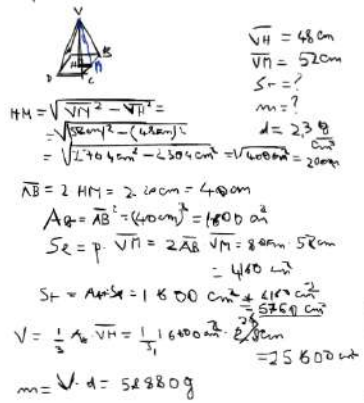 V
D H M B
C
VH = 48 cm
VM = 52 cm
St = ?
m = ?
d = 2,3 g/cm³
HM = √(VM² − VH²) =
= √((52cm)² − (48cm)²
= √(2704cm² − 2304cm² = √400cm² = 20cm
AB = 2 HM = 2 · 20cm = 40cm
AB = AB² = (40cm)² = 1600 cm²
Sl = p · VM = 2AB VM = 80cm · 52cm
= 4160 cm²
St = Ab+Sl = 1600 cm² + 4160 cm²
= 5760 cm²
V = 1/3 Ab · VH = 1/3 1600cm² · 48cm
= 25600 cm³
m = V · d = 58880g